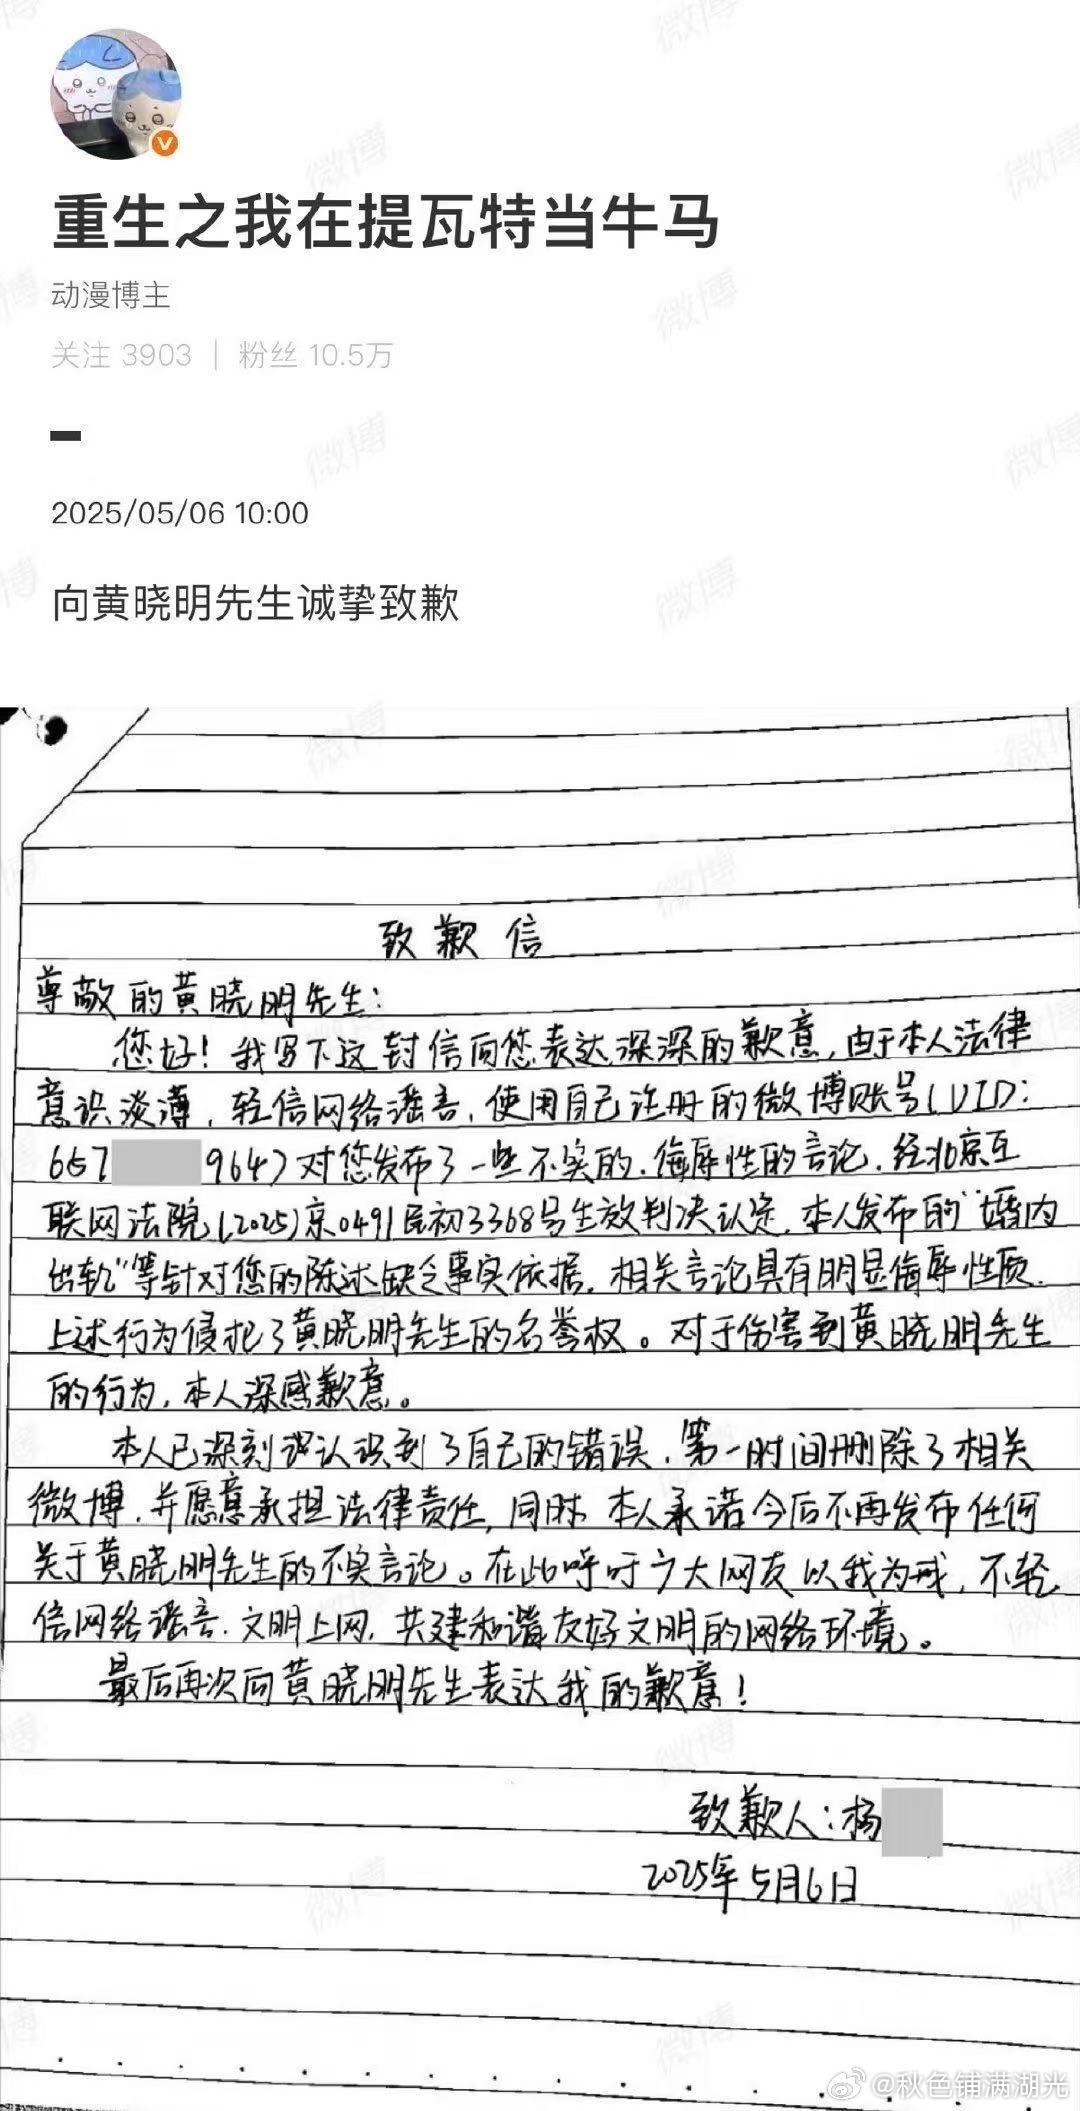 重生之我在提瓦特当牛马
动漫博主
关注 3903 | 粉丝 10.5万
2025/05/06 10:00
向黄晓明先生诚挚致歉
致歉信
尊敬的黄晓明先生:
您好!我写下这封信向您表达深深的歉意,由于本人法律
意识淡薄,轻信网络谣言,使用自己注册的微博账号(UID:
657 9647)对您发布了一些不实的、侮辱性的言论,经北京互
联网法院(2025)京0491民初3368号生效判决认定,本人发布的"婚内
出轨"等针对您的陈述缺乏事实依据,相关言论具有明显侮辱性质,
上述行为侵犯了黄晓明先生的名誉权。对于伤害到黄晓明先生
的行为,本人深感歉意。
本人已深刻认识到了自己的错误,第一时间删除了相关
微博,并愿意承担法律责任,同时,本人承诺今后不再发布任何
关于黄晓明先生的不实言论。在此呼吁广大网友以我为戒,不轻
信网络谣言,文明上网,共建和谐友好文明的网络环境。
最后再次向黄晓明先生表达我的歉意!
致歉人:杨
2025年5月6日
@秋色铺满湖光
微博